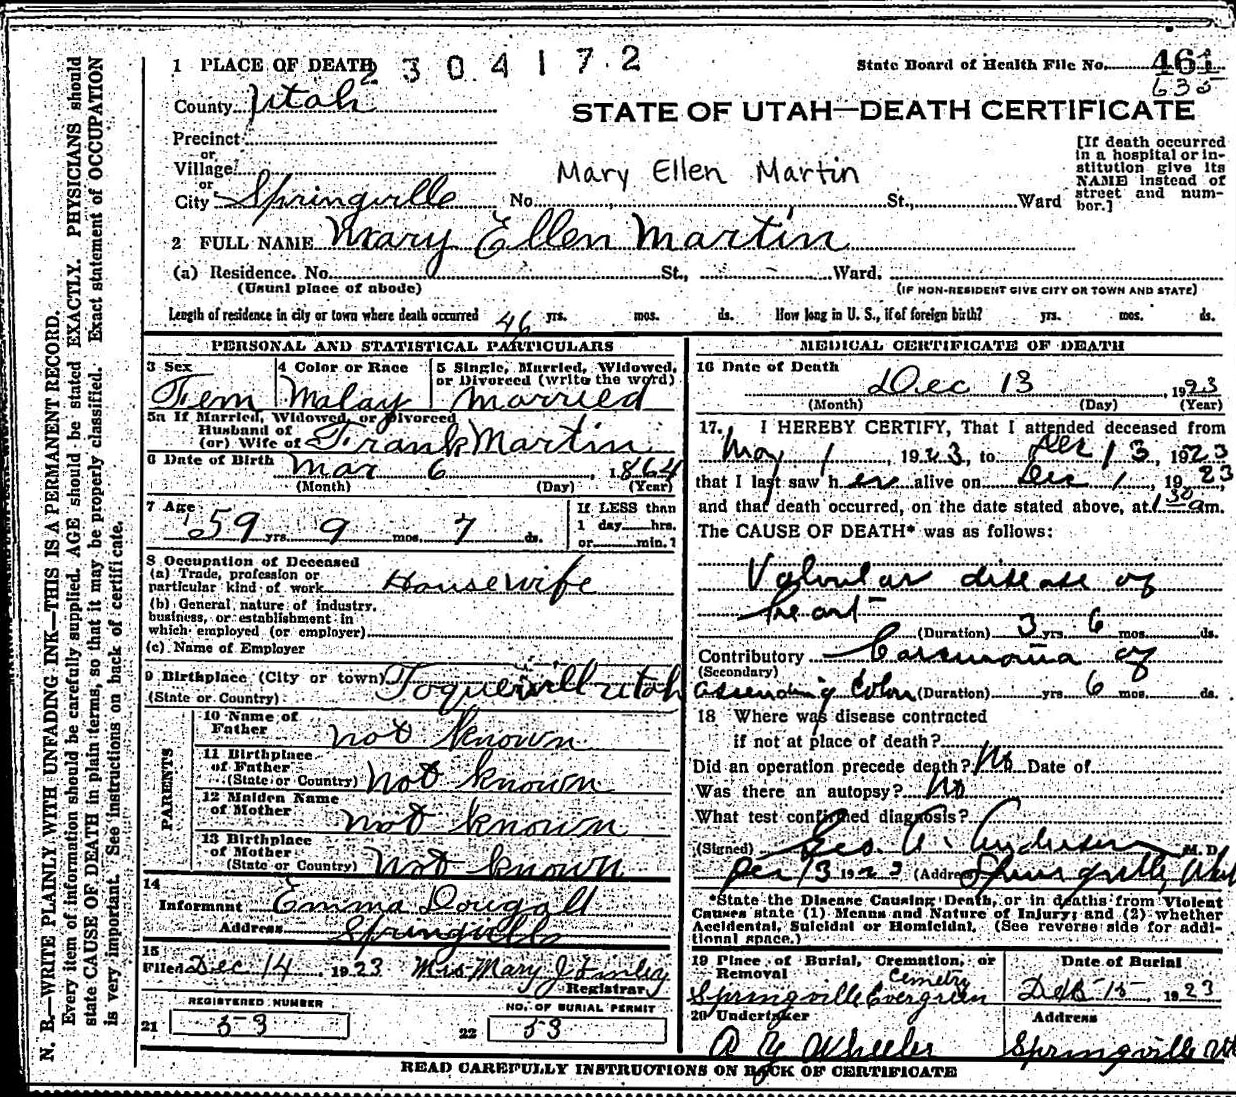 1 PLACE OF DEATH 2 3 0 4 1 7 2 State Board of Health File No. 461
635
County Utah
STATE OF UTAH—DEATH CERTIFICATE
Precinct
or
Village
or
City Springville No. St., Ward
Mary Ellen Martin
[If death occurred in a hospital or institution give its NAME instead of street and number.]
2 FULL NAME Mary Ellen Martin
(a) Residence. No. St., Ward.
(Usual place of abode) (IF NON-RESIDENT GIVE CITY OR TOWN AND STATE)
Length of residence in city or town where death occurred 46 yrs. mos. ds. How long in U. S., if of foreign birth? yrs. mos. ds.
PERSONAL AND STATISTICAL PARTICULARS
3 Sex 4 Color or Race 5 Single, Married, Widowed,
or Divorced (write the word)
Fem Malay Married
5a If Married, Widowed, or Divorced
Husband of
(or) Wife of Frank Martin
6 Date of Birth Mar 6, 1864
(Month) (Day) (Year)
7 Age 59 yrs. 9 mos. 7 ds.
If LESS than
1 day hrs.
or min.?
8 Occupation of Deceased
(a) Trade, profession or
particular kind of work Housewife
(b) General nature of industry,
business, or establishment in
which employed (or employer)
(c) Name of Employer
9 Birthplace (City or town) Toquerville Utah
(State or Country)
PARENTS
10 Name of
Father not known
11 Birthplace
of Father
(State or Country) not known
12 Maiden Name
of Mother not known
13 Birthplace
of Mother
(State or Country) not known
14
Informant Emma Dougall
Address Springville
15
Filed Dec 14 1923 Mrs Mary J Finley
Registrar
REGISTERED NUMBER NO. OF BURIAL PERMIT
21 53 22 53
MEDICAL CERTIFICATE OF DEATH
16 Date of Death
Dec 13, 1923
(Month) (Day) (Year)
17. I HEREBY CERTIFY, That I attended deceased from
May 1, 1923, to Dec 13, 1923
that I last saw her alive on Dec 1, 1923,
and that death occurred, on the date stated above, at 1 30 a m.
The CAUSE OF DEATH* was as follows:
Valvular disease of
heart
(Duration) 3 yrs 6 mos. ds.
Contributory Carcinoma of
(Secondary)
assending Colon (Duration) yrs. 6 mos. ds.
18 Where was disease contracted
if not at place of death?
Did an operation precede death? No Date of
Was there an autopsy? No
What test confirmed diagnosis?
(Signed) Geo A. Anderson M. D.
Dec 13 1923 (Address) Springville, Utah
*State the Disease Causing Death, or in deaths from Violent
Causes state (1) Means and Nature of Injury; and (2) whether
Accidental, Suicidal or Homicidal. (See reverse side for addi-
tional space.)
19 Place of Burial, Cremation, or Date of Burial
Removal Cemetry
Springville Evergreen Dec 15, 1923
20 Undertaker Address
A Y Wheeler Springville Ut
READ CAREFULLY INSTRUCTIONS ON BACK OF CERTIFICATE
N. B.—WRITE PLAINLY WITH UNFADING INK—THIS IS A PERMANENT RECORD.
Every item of information should be carefully supplied. AGE should be stated EXACTLY. PHYSICIANS should
state CAUSE OF DEATH in plain terms, so that it may be properly classified. Exact statement of OCCUPATION
is very important. See instructions on back of certificate.